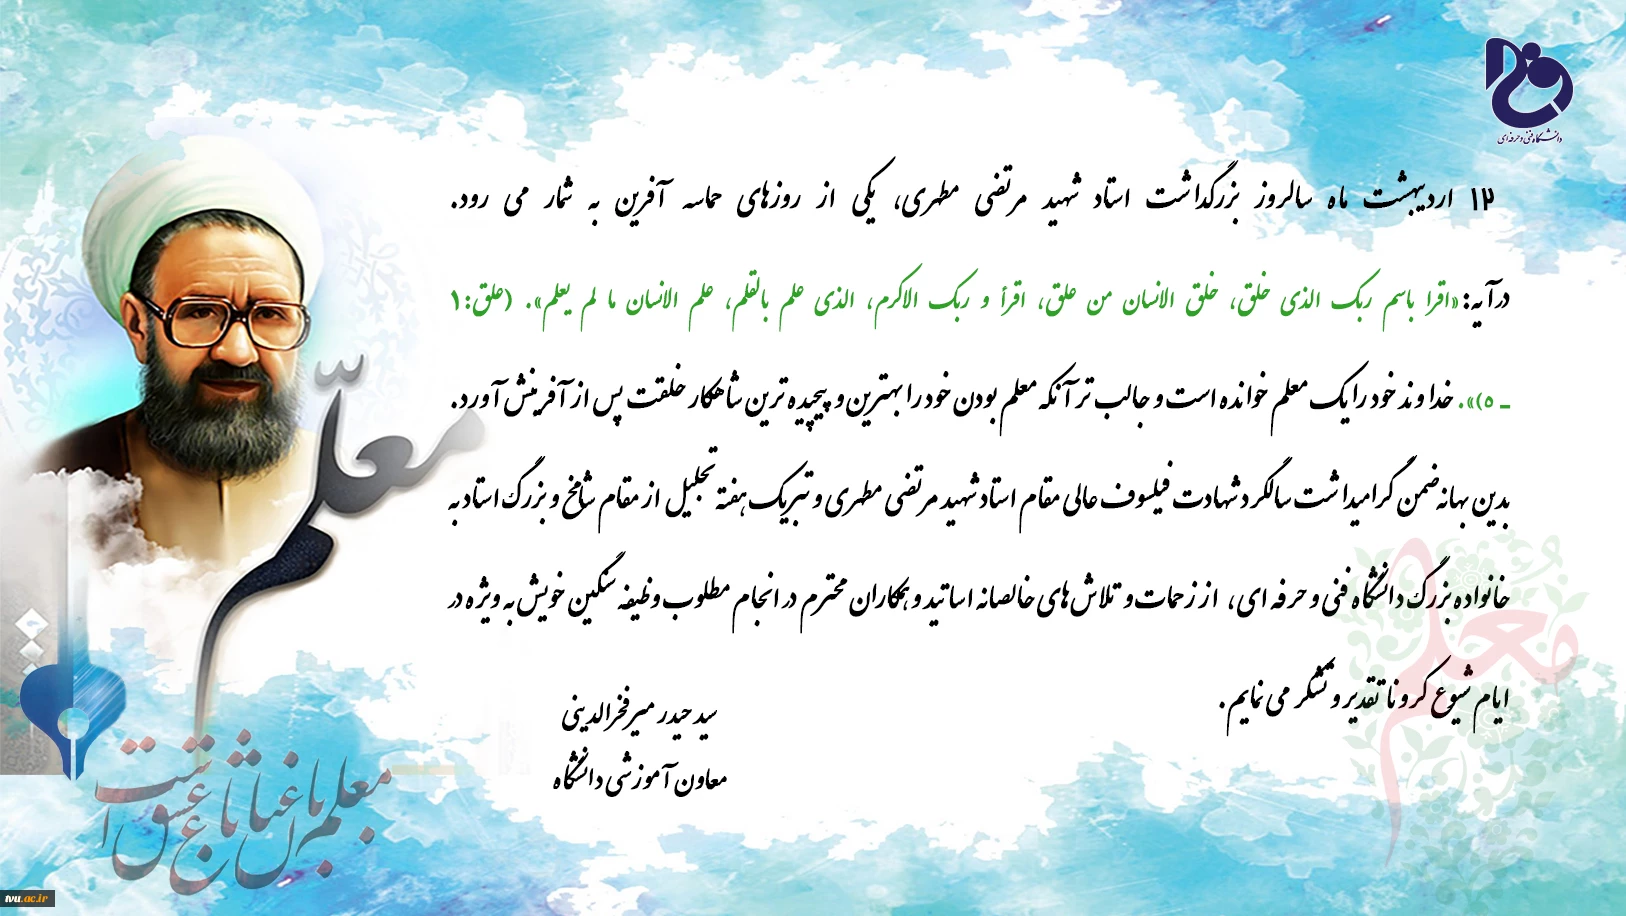 دانشگاه فنی و حرفه ای
۱۲ اردیبهشت ماه سالروز بزرگداشت استاد شهید مرتضی مطهری، یکی از روزهای حماسه آفرین به شمار می رود.
در آیه: «اقرا باسم ربک الذی خلق، خلق الانسان من علق، اقرأ و ربک الاکرم، الذی علم بالقلم، علم الانسان ما لم یعلم». (علق: ۱
ـ ۵)». خداوند خود را یک معلم خوانده است و جالب تر آنکه معلم بودن خود را بهترین و پیچیده ترین شاهکار خلقت پس از آفرینش آورد.
بدین بهانه ضمن گرامیداشت سالگرد شهادت فیلسوف عالی مقام استاد شهید مرتضی مطهری و تبریک هفته تجلیل از مقام شامخ و بزرگ استاد به
خانواده بزرگ دانشگاه فنی و حرفه ای، از زحمات و تلاش های خالصانه اساتید و همکاران محترم در انجام مطلوب وظیفه سنگین خویش به ویژه در
ایام شیوع کرونا تقدیر و تشکر می نمایم.
سید حیدر میرفخرالدینی
معاون آموزشی دانشگاه
معلّم
معلم
معلم باغبان باغ عشق است
tvu.ac.ir